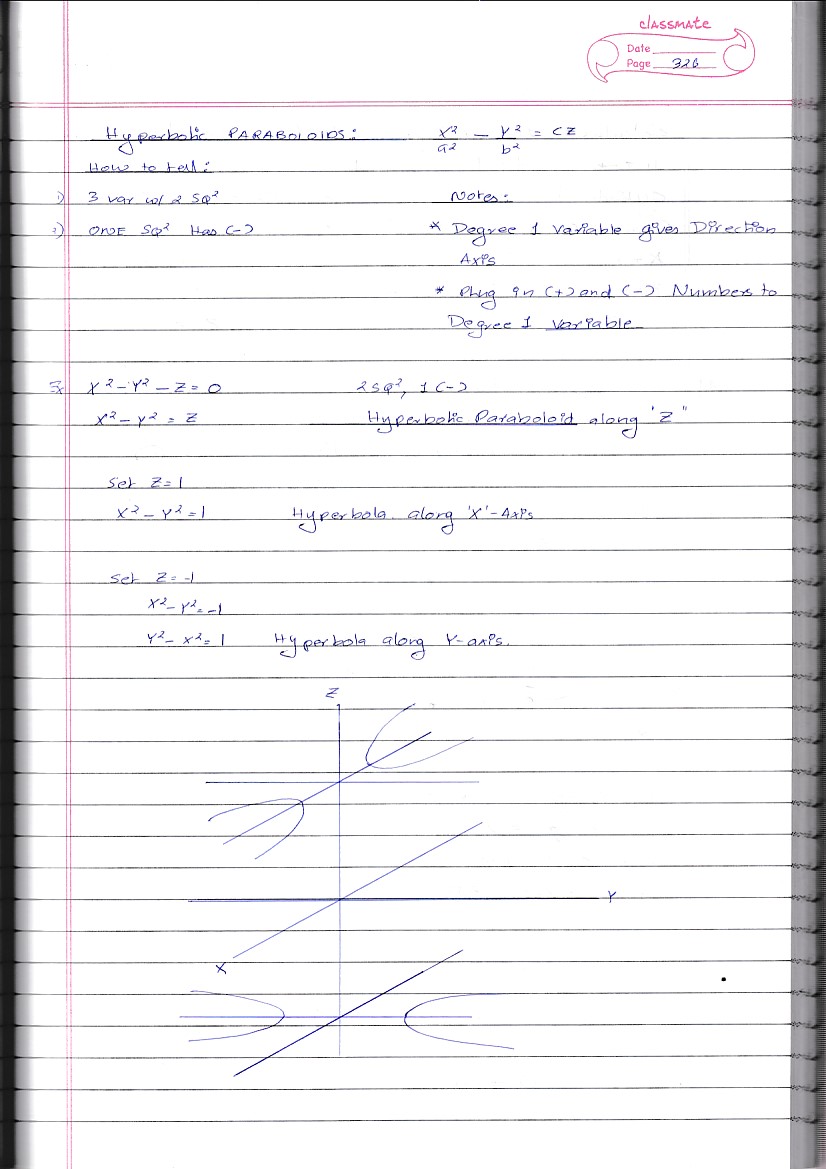 classmate
Date
Page 326
Hyperbolic PARABOLOIDS: X²/a² - Y²/b² = CZ
How to tell:
1) 3 var w/ 2 SQ²
2) ONE SQ² Has (-)
Notes:
* Degree 1 Variable gives Direction
Axis
* Plug in (+) and (-) Numbers to
Degree 1 Variable
Ex X² - Y² - Z = 0 2 SQ², 1 (-)
X² - Y² = Z Hyperbolic Paraboloid along "Z"
Set Z = 1
X² - Y² = 1 Hyperbola along 'X' - Axis
Set Z = -1
X² - Y² = -1
Y² - X² = 1 Hyperbola along Y-axis.
Z
Y
X